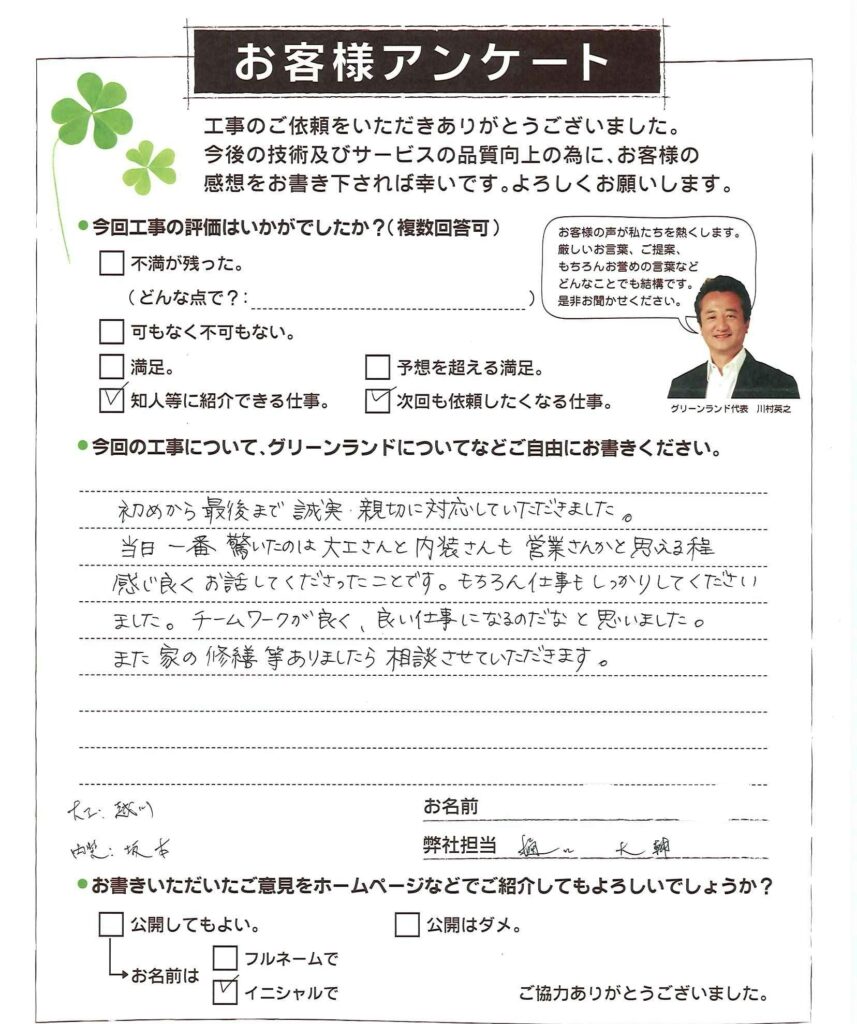 お客様アンケート
工事のご依頼をいただきありがとうございました。
今後の技術及びサービスの品質向上の為に、お客様の
感想をお書き下されば幸いです。よろしくお願いします。
今回工事の評価はいかがでしたか？（複数回答可）
お客様の声が私たちを熱くします。
厳しいお言葉、ご提案、
もちろんお誉めの言葉など
どんなことでも結構です。
是非お聞かせください。
不満が残った。
（どんな点で？： ）
可もなく不可もない。
満足。 予想を超える満足。
知人等に紹介できる仕事。 次回も依頼したくなる仕事。
グリーンランド代表 川村英之
今回の工事について、グリーンランドについてなどご自由にお書きください。
初めから最後まで 誠実・親切に対応していただきました。
当日 一番 驚いたのは 大工さんと 内装さんも 営業さんかと 思える程
感じ良く お話してくださったことです。もちろん仕事も しっかりしてください
ました。チームワークが良く、良い仕事になるのだな と 思いました。
また 家の 修繕 等ありましたら 相談させていただきます。
大工: 越川
お名前
内装: 坂本
弊社担当 大輔
お書きいただいたご意見をホームページなどでご紹介してもよろしいでしょうか？
公開してもよい。 公開はダメ。
お名前は
フルネームで
イニシャルで
ご協力ありがとうございました。